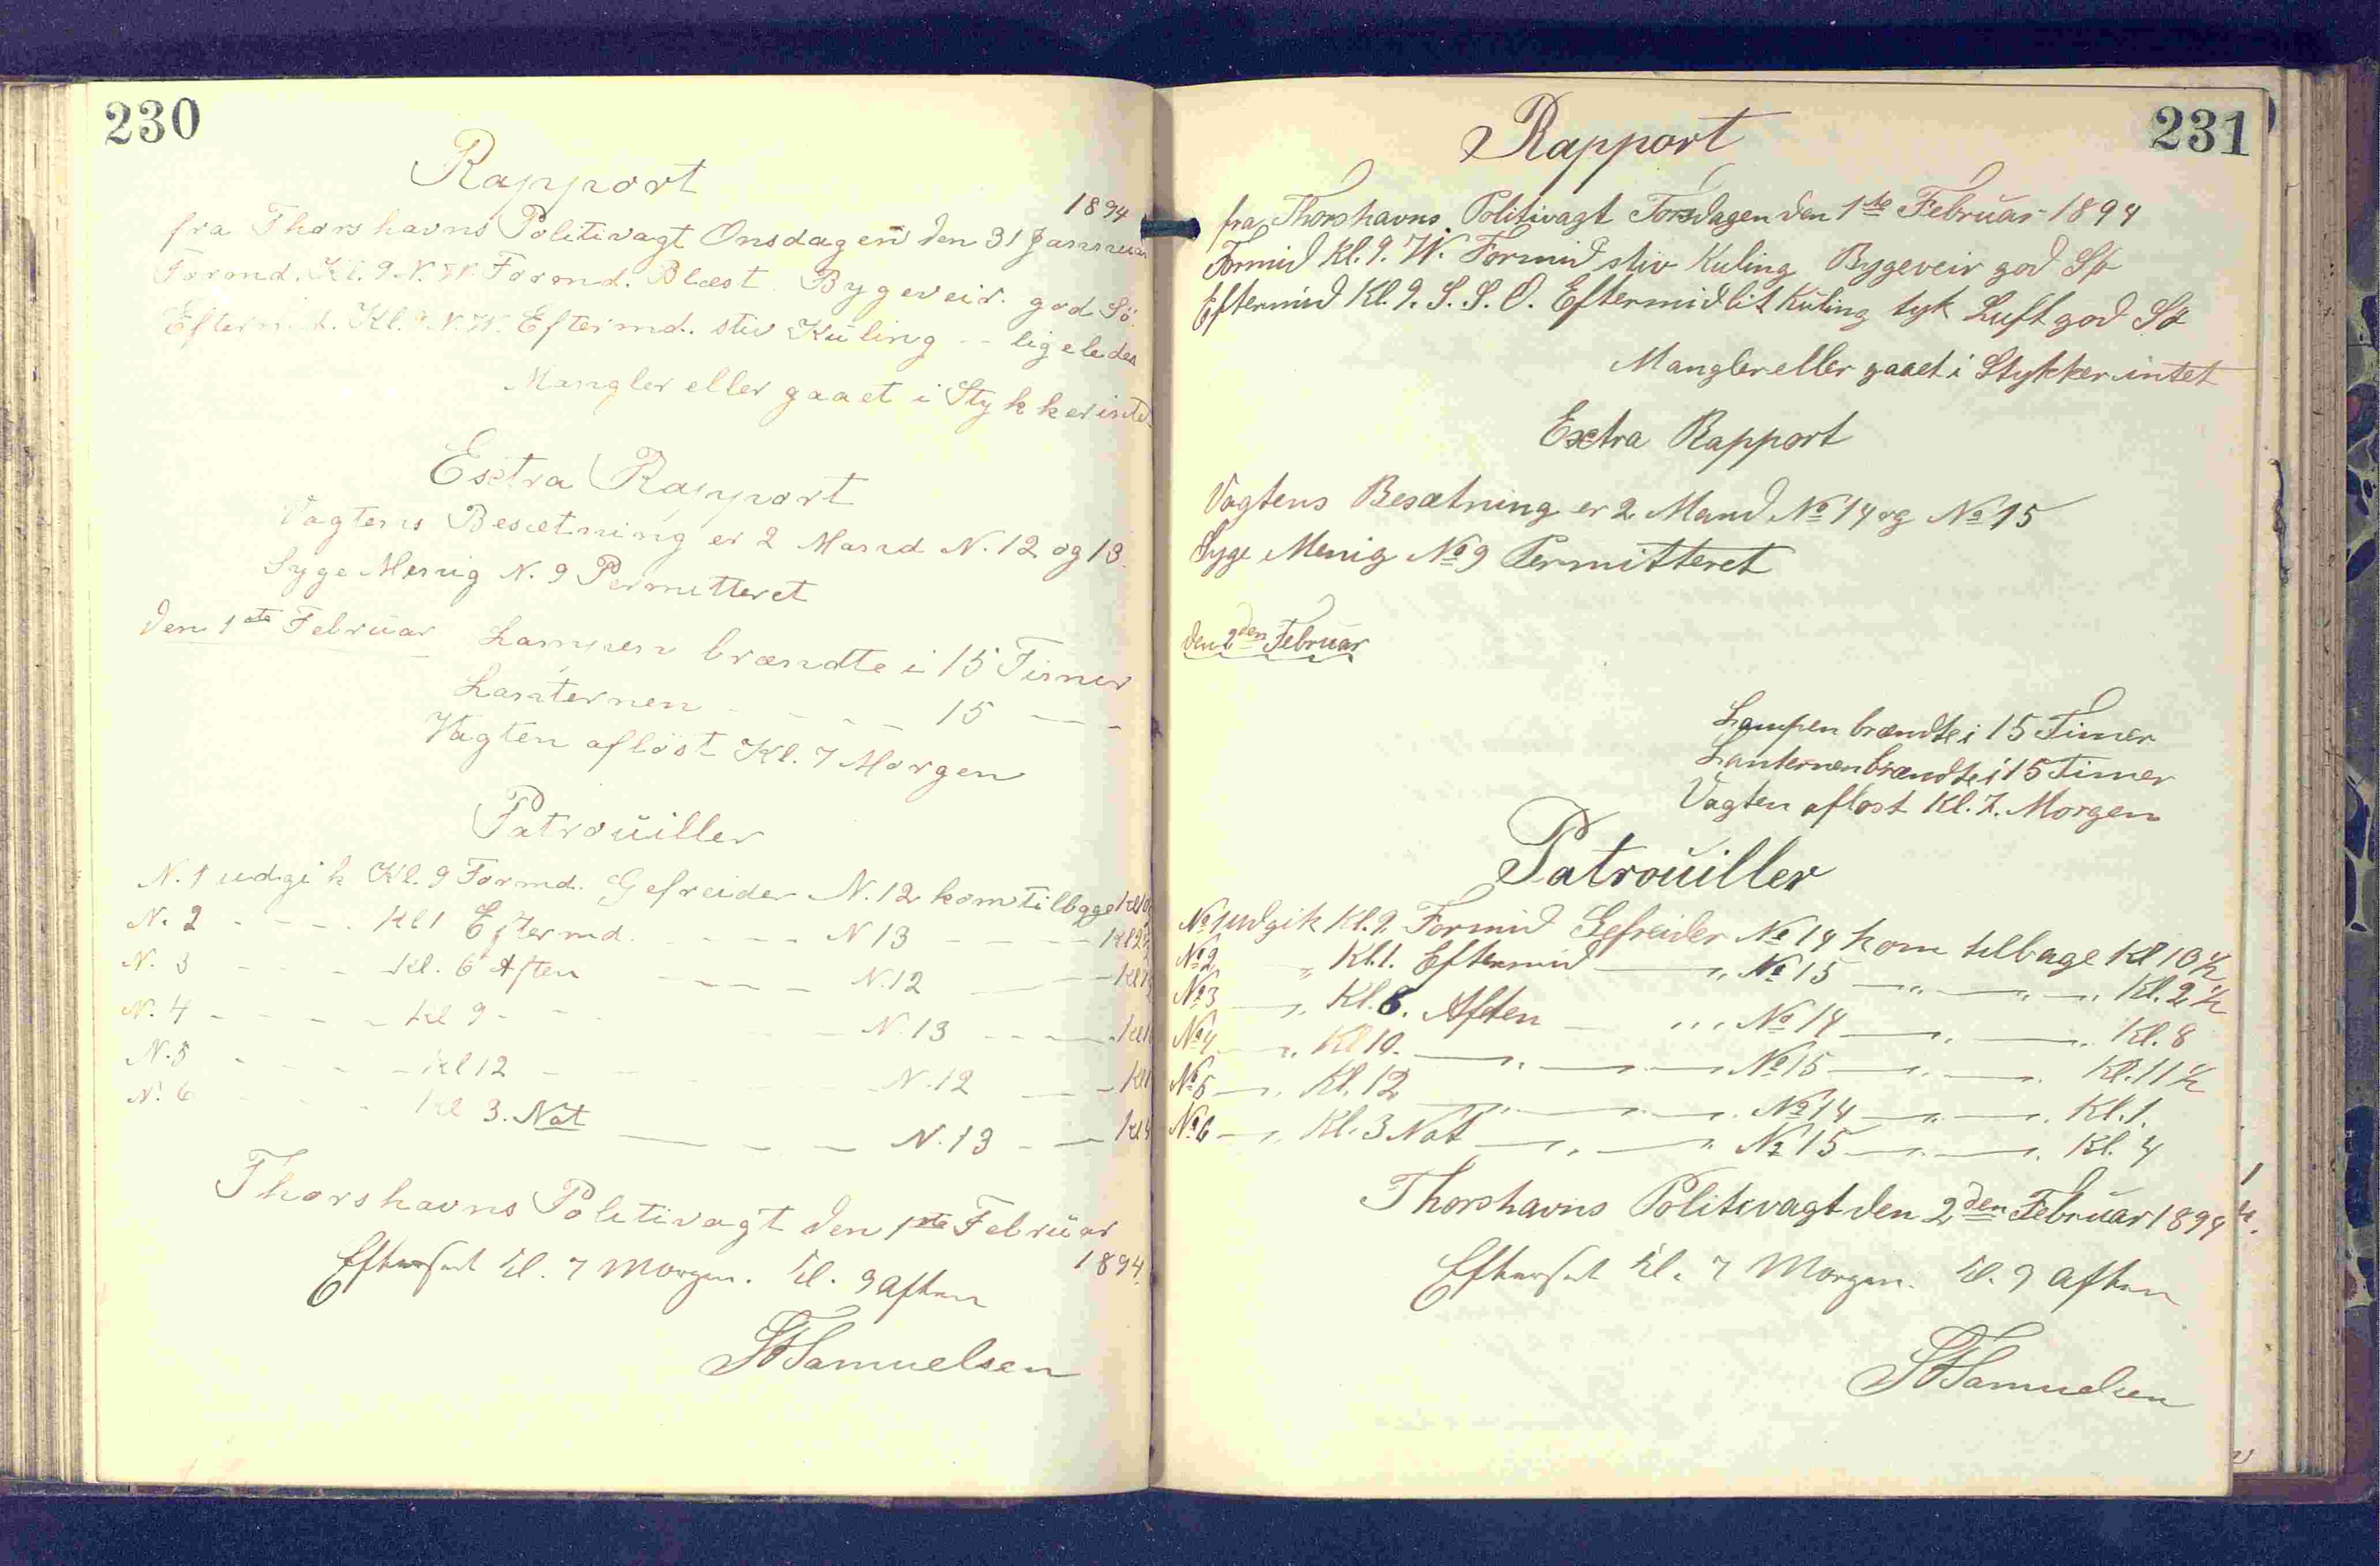 230
Rapport
1894
fra Thorshavns Politivagt Onsdagen den 31 Januar
Formd. Kl. 9. N. W. Formd. Blæst. Bygeveir. god Sö.
Eftermd. Kl. 9 N. W. Eftermd. stiv Kuling -- ligeledes
Mangler eller gaaet i Stykker
Extra Rapport
Vagtens Besætning er 2 Mand N. 12 og 13.
Syge Menig N. 9 Permitteret
den 1ste Februar Lampen brændte i 15 Timer
Lanternen - - - - 15 - - -
Vagten aflöst Kl. 7 Morgen
Patrouiller
N. 1 udgik Kl. 9 Formd. Gefreider N. 12 kom tilbage
N. 2 - - - Kl 1 Eftermd. - - - - N 13 - - - -
N. 3 - - - Kl. 6 Aften - - - - N. 12 - - -
N. 4 - - - - Kl 9 - - - N. 13 - - - -
N. 5 - - - - Kl 12 - - - N. 12 - -
N. 6 - - - Kl 3. Nat - - - N. 13 - -
Thorshavns Politivagt den 1ste Februar
1894.
Efterset kl. 7 Morgen. kl. 9 Aften
Samuelsen
231
Rapport
fra Thorshavns Politivagt Torsdagen den 1ste Februar 1894
Formid Kl. 9. W. Formid stiv Kuling Bygeveir god Sö
Eftermid Kl. 9. S. S. O. Eftermid lit Kuling tyk Luft god Sö
Mangler eller gaaet i Stykker intet
Extra Rapport
Vagtens Besætning er 2 Mand No 14 og No 15
Syge Menig No 9 Permitteret
den 2den Februar
Lampen brændte i 15 Timer
Lanternen brændte i 15 Timer
Vagten aflöst Kl. 7. Morgen
Patrouiller
No 1 udgik Kl. 9 Formid Gefreider No 14 kom tilbage Kl 10 ½
No 2 " Kl. 1. Eftermid — " No 15 — " — " — " Kl. 2 ½
No 3 — " Kl. 6. Aften — " No 14 — " — " Kl. 8
No 4 — " Kl 10. — " — " — No 15 — " — " Kl. 11 ½
No 5 — " Kl. 12 — " — " — " No 14 — " — " Kl. 1.
No 6 — " Kl. 3 Nat — " — " No 15 — " — " Kl. 4
Thorshavns Politivagt den 2den Februar 1894
Efterset kl. 7 Morgen. kl. 9 Aften
Samuelsen